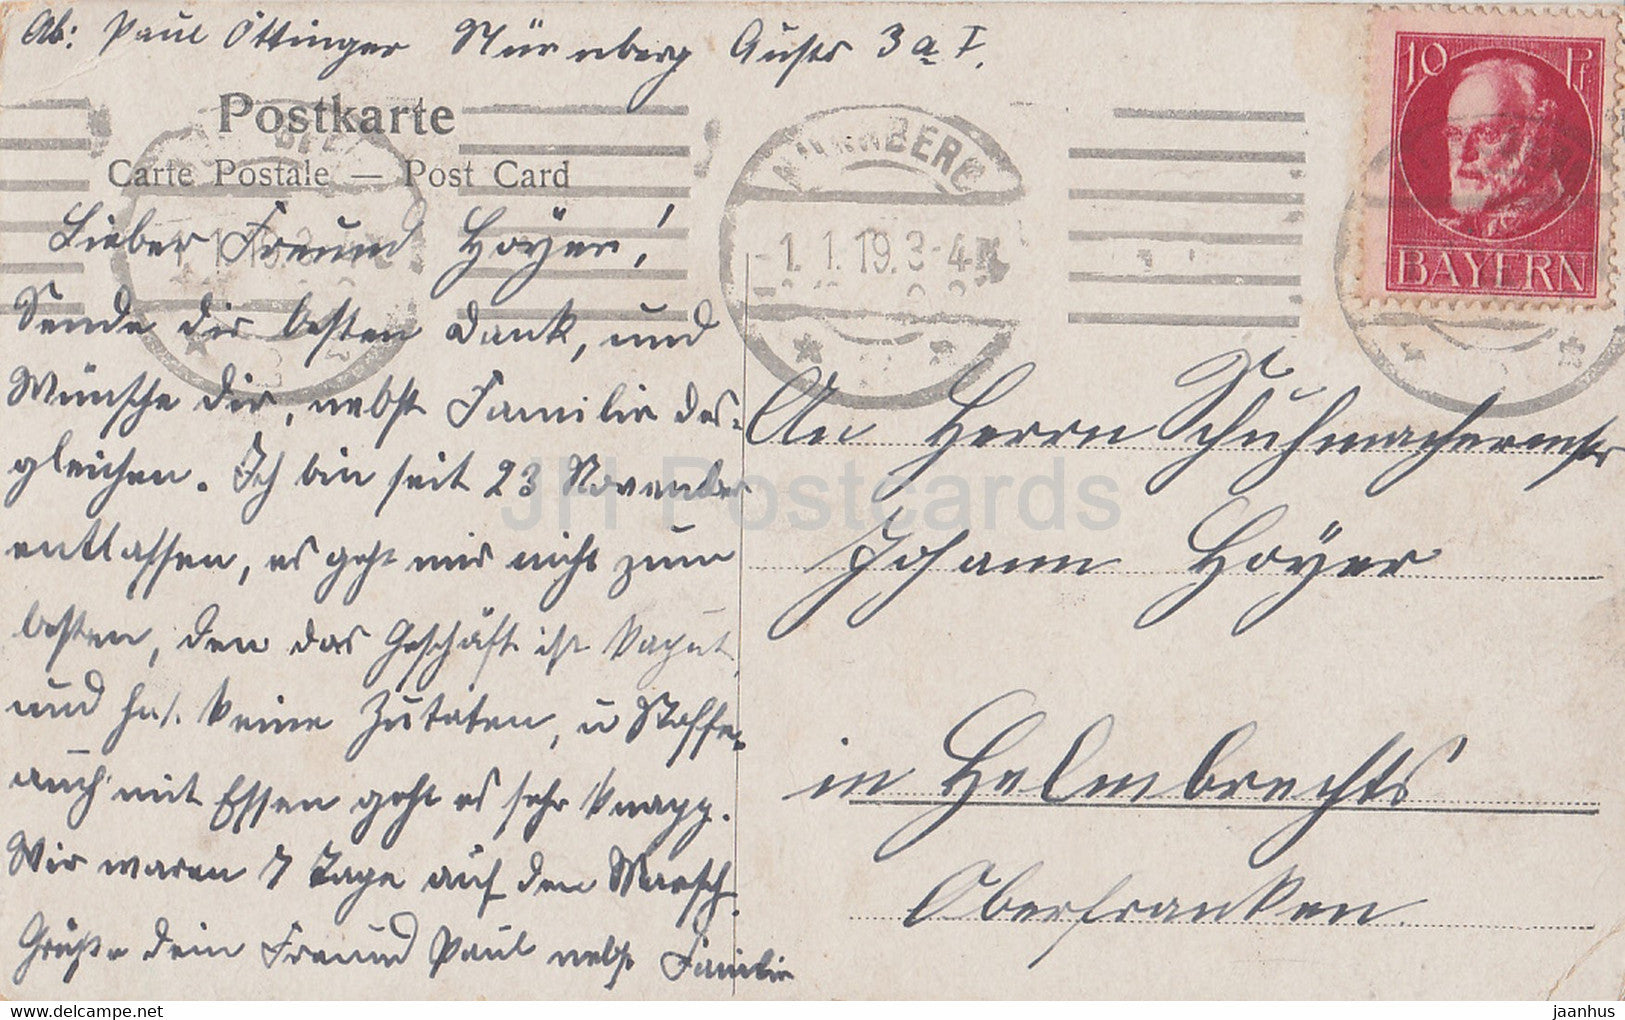 Ab: Paul Öttinger Nürnberg Austr 3 a I.
Postkarte
Carte Postale — Post Card
NÜRNBERG
1. 1. 19. 3-4 N
10 Pf
BAYERN
Lieber Freund Hoÿer!
Sende dir besten Dank, und
Wünsche dir, nebst Familie des-
gleichen. Ich bin seit 23 November
entlassen, es geht mir nicht zum
besten, den das Geschäft ist kaput
und hat keine Zutaten, u Stoffe.
auch mit Essen geht es sehr knapp.
Wir waren 7 Tage auf den Marsch.
Grüße dein Freund Paul nebst Familie
An Herrn Schuhmachermstr
Johann Hoÿer
in Helmbrechts
Oberfranken
JH Postcards
www.delcampe.net
jaanhus